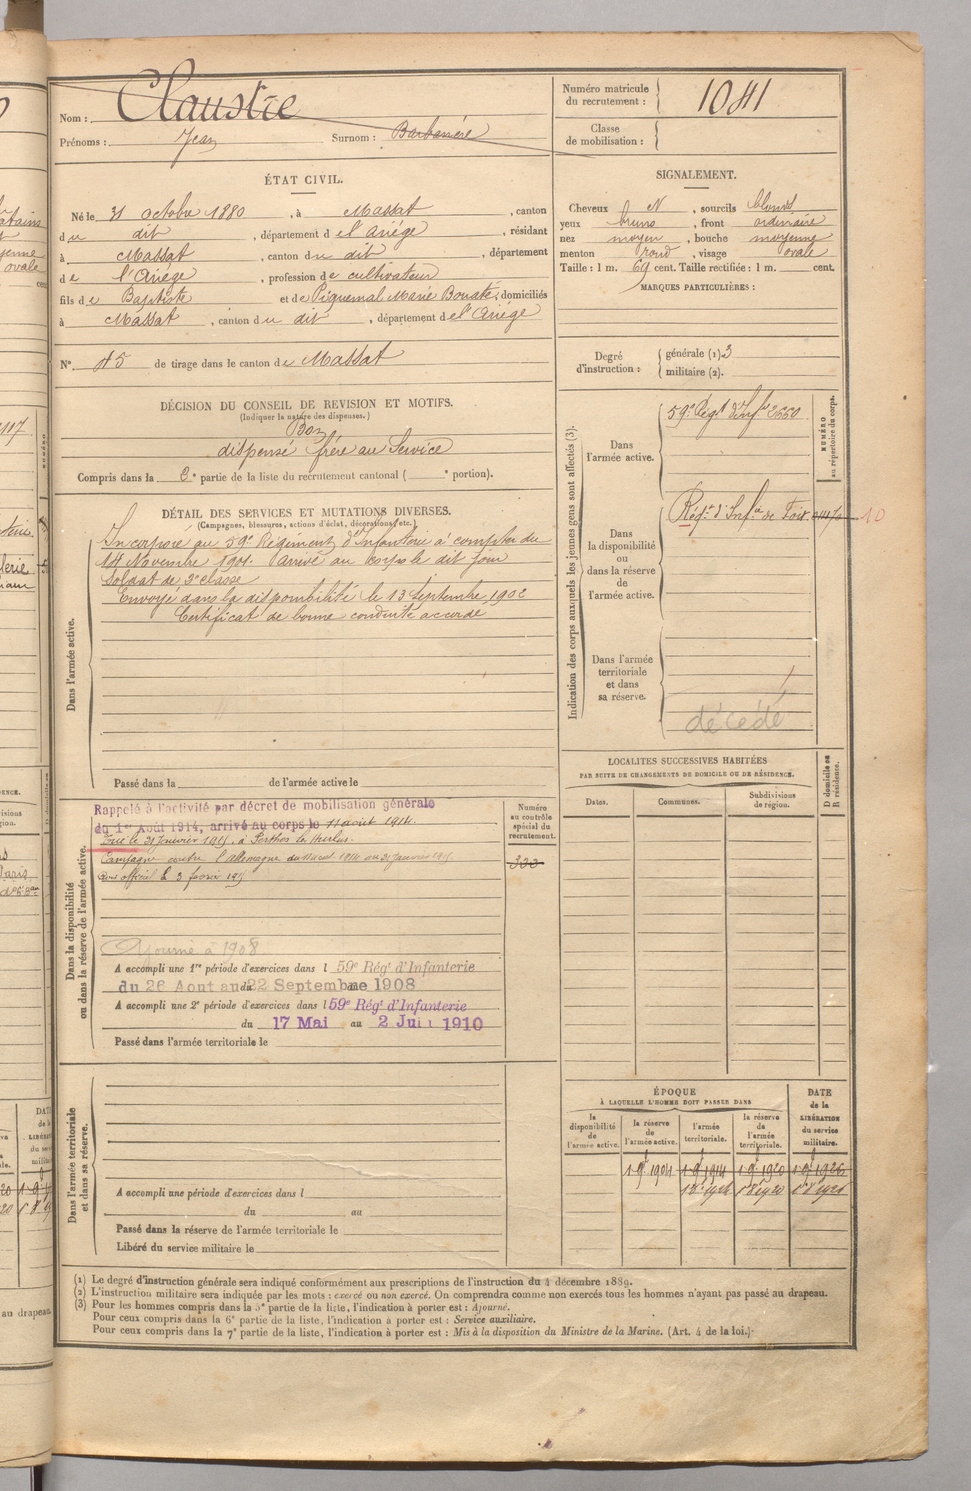 Nom : Claustre
Prénoms : Jean Surnom : Barbanère
Numéro matricule du recrutement : 1041
Classe de mobilisation :
ÉTAT CIVIL.
Né le 31 octobre 1880, à Massat, canton
du dit, département de l'Ariège, résidant
à Massat, canton du dit, département
de l'Ariège, profession de cultivateur
fils de Baptiste et de Piquemal Marie Bonate, domiciliés
à Massat, canton du dit, département de l'Ariège
N° 45 de tirage dans le canton de Massat
SIGNALEMENT.
Cheveux N, sourcils blonds
yeux bruns, front ordinaire
nez moyen, bouche moyenne
menton rond, visage ovale
Taille : 1 m. 69 cent. Taille rectifiée : 1 m. cent.
MARQUES PARTICULIÈRES :
Degré d'instruction : générale (1) 3
militaire (2).
DÉCISION DU CONSEIL DE REVISION ET MOTIFS.
(Indiquer la nature des dispenses.)
Bon
dispensé frère au Service
Compris dans la e partie de la liste du recrutement cantonal ( e portion).
DÉTAIL DES SERVICES ET MUTATIONS DIVERSES.
(Campagnes, blessures, actions d'éclat, décorations, etc.)
Dans l'armée active.
Incorporé au 59e Régiment d'Infanterie à compter du
14 Novembre 1901. Arrivé au corps le dit jour
Soldat de 2e classe
Envoyé dans la disponibilité le 13 Septembre 1902
Certificat de bonne conduite accordé
Passé dans la de l'armée active le
Indication des corps auxquels les jeunes gens sont affectés (3).
NUMÉRO au répertoire du corps.
Dans l'armée active.
59e Régt d'Infie 2550
Dans la disponibilité ou dans la réserve de l'armée active.
Régt d'Infie de Foix
10
Dans l'armée territoriale et dans sa réserve.
décédé
LOCALITES SUCCESSIVES HABITÉES
PAR SUITE DE CHANGEMENTS DE DOMICILE OU DE RÉSIDENCE.
Dates. Communes. Subdivisions de région. D domicile ou R résidence.
Dans la disponibilité ou dans la réserve de l'armée active.
Numéro au contrôle spécial du recrutement.
Rappelé à l'activité par décret de mobilisation générale
du 1er Août 1914, arrivé au corps le 11 aout 1914.
Tué le 31 Janvier 1915, à Perthes les Hurlus
Campagne contre l'Allemagne du 11 aout 1914 au 31 Janvier 1915.
Avis officiel le 3 février 1915
Ajourné à 1908
A accompli une 1re période d'exercices dans l 59e Régt d'Infanterie
du 26 Aout au 22 Septembre 1908
A accompli une 2e période d'exercices dans l 59e Régt d'Infanterie
du 17 Mai au 2 Juin 1910
Passé dans l'armée territoriale le
Dans l'armée territoriale et dans sa réserve.
A accompli une période d'exercices dans l
du au
Passé dans la réserve de l'armée territoriale le
Libéré du service militaire le
ÉPOQUE
À LAQUELLE L'HOMME DOIT PASSER DANS
la disponibilité de l'armée active. la réserve de l'armée active. l'armée territoriale. la réserve de l'armée territoriale. DATE de la LIBÉRATION du service militaire.
(1) Le degré d'instruction générale sera indiqué conformément aux prescriptions de l'instruction du 4 décembre 1889.
(2) L'instruction militaire sera indiquée par les mots : exercé ou non exercé. On comprendra comme non exercés tous les hommes n'ayant pas passé au drapeau.
(3) Pour les hommes compris dans la 5e partie de la liste, l'indication à porter est : Ajourné.
Pour ceux compris dans la 6e partie de la liste, l'indication à porter est : Service auxiliaire.
Pour ceux compris dans la 7e partie de la liste, l'indication à porter est : Mis à la disposition du Ministre de la Marine. (Art. 4 de la loi.)